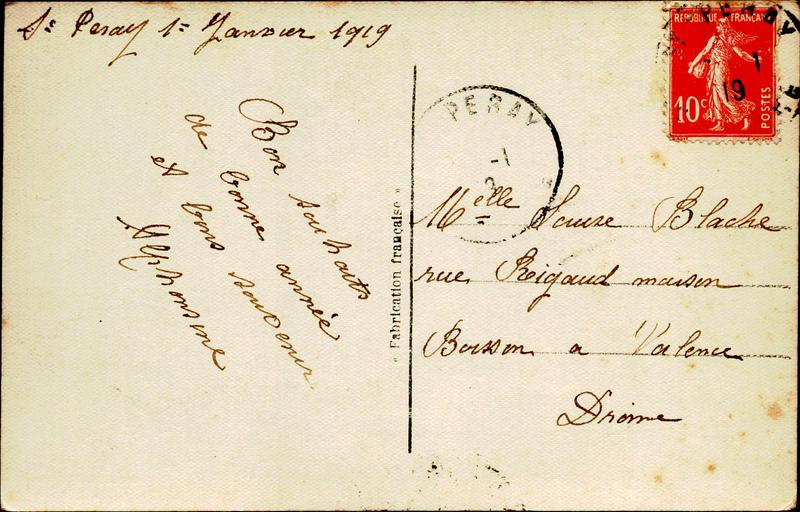 St Peray 1er Janvier 1919
Bon souhaits
de bonne année
et bons souvenir
Alphonsine
« Fabrication française »
PERAY
-1
RÉPUBLIQUE FRANÇAISE
10c
POSTES
PERAY
1
19
Melle Louise Blache
rue Rigaud maison
Boisson a Valence
Drome